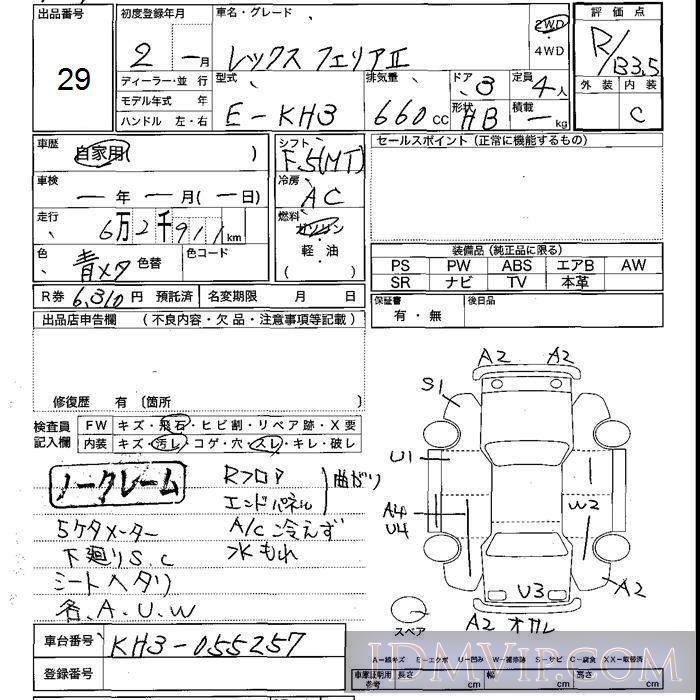 出品番号
29
初度登録年月
2 年 一月
ディーラー・並 行
モデル年式 年
ハンドル 左・右
車名・グレード
レックス フェリアⅡ
2WD
・
4WD
型式
E-KH3
排気量
660 cc
ドア
3
定員
4人
形状
HB
積載
一kg
評 価 点
R/B3.5
外 装
内 装
C
車歴
自家用( )
車検
一 年 一月(一日)
走行
6万2千911km
色
青メタ
色替
色コード
シフト
F5(MT)
冷房
AC
燃料
ガソリン
・
軽・油
( )
セールスポイント(正常に機能するもの)
装備品(純正品に限る)
PS PW ABS エアB AW
SR ナビ TV 本革
R券 6,310円 預託済
名変期限 月 日
保証書
有・無
後日品
出品店申告欄 (不良内容・欠品・注意事項等記載)
修復歴 有 〔箇所
検査員
記入欄
FW キズ・飛石・ヒビ割・リペア跡・X要
内装 キズ・汚レ・コゲ・穴・スレ・キレ・破レ
ノークレーム
5ケタメーター
下廻りS.C
シートヘタリ
各.A.U.W
Rフロア
エンドパネル
曲がり
A/C冷えず
水もれ
A2 A2
S1
U1
A4
U4
W2
U3
A2
A2 オカレ
スペア
車台番号 KH3-055257
登録番号
A-線キズ E-エクボ U-凹み W-補修跡 S-サビ C-腐食 XX-取替済
車庫証明用
参考
長さ cm
幅 cm
高さ cm